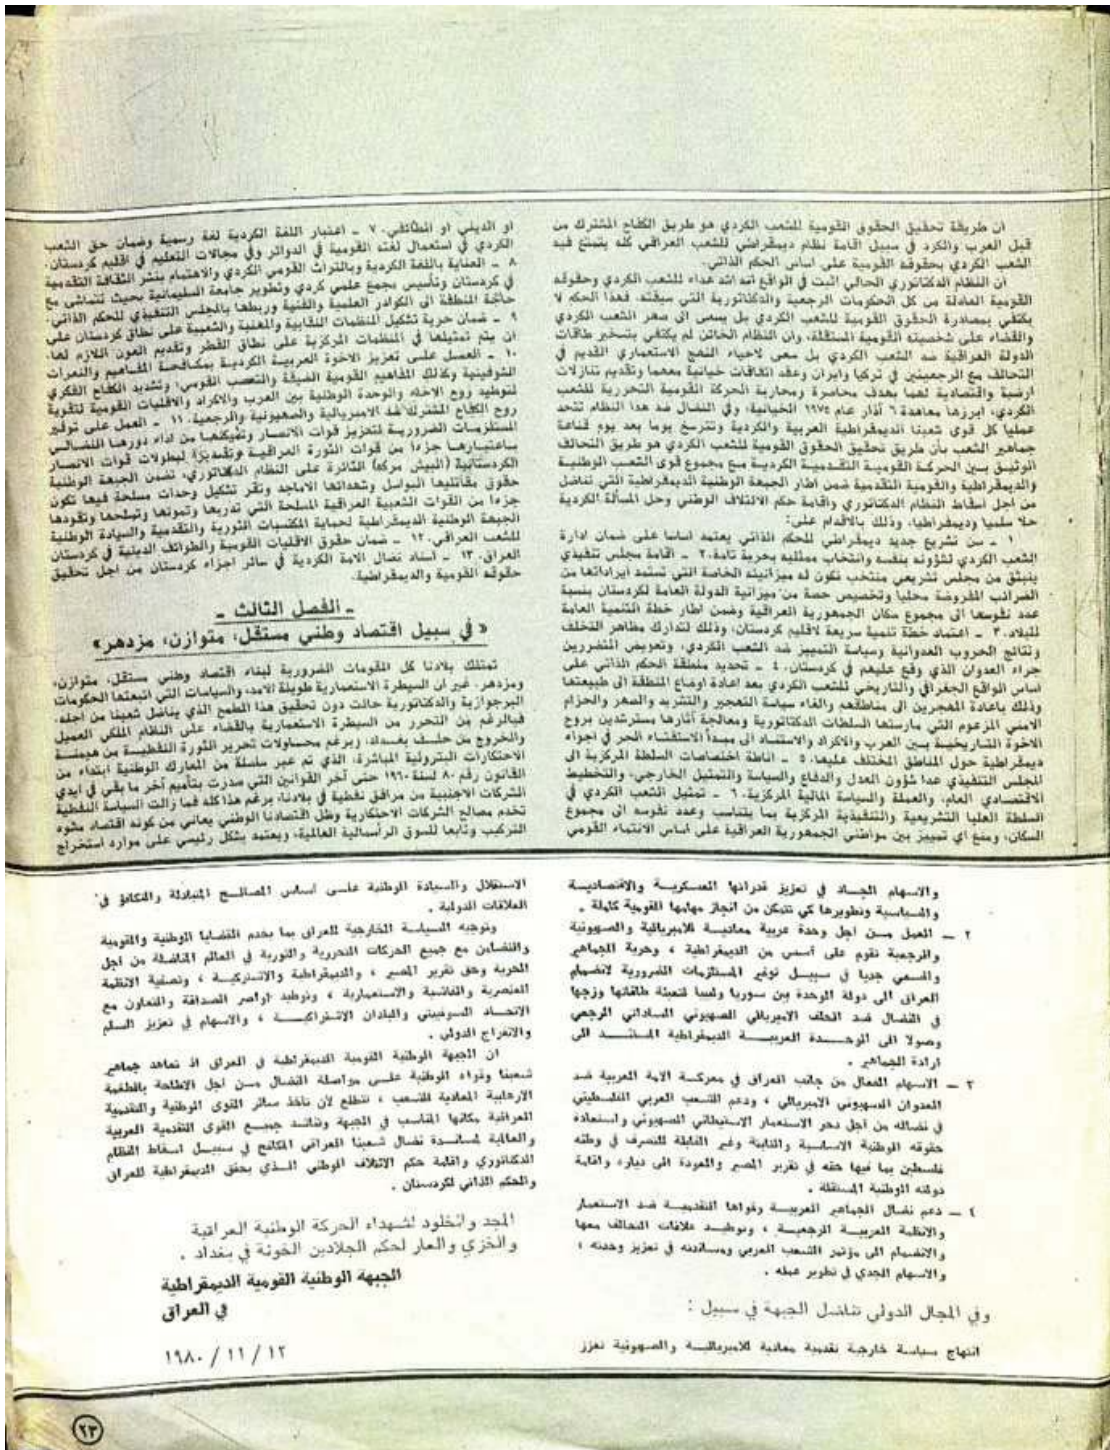 ان طريقة تحقيق الحقوق القومية للشعب الكردي هو طريق الكفاح المشترك من
قبل العرب والكرد في سبيل اقامة نظام ديمقراطي للشعب العراقي كله يتمتع فيه
الشعب الكردي بحقوقه القومية على اساس الحكم الذاتي.
ان النظام الدكتاتوري الحالي اثبت في الواقع انه اشد عداء للشعب الكردي وحقوقه
القومية العادلة من كل الحكومات الرجعية والدكتاتورية التي سبقته. فهذا الحكم لا
يكتفي بمصادرة الحقوق القومية للشعب الكردي بل يسعى الى صهر الشعب الكردي
والقضاء على شخصيته القومية المستقلة، وان النظام الخائن لم يكتفي بتسخير طاقات
الدولة العراقية ضد الشعب الكردي بل سعى لاحياء النهج الاستعماري القديم في
التحالف مع الرجعيتين في تركيا وايران وعقد اتفاقات خيانية معهما وتقديم تنازلات
ارضية واقتصادية لهما بهدف محاصرة ومحاربة الحركة القومية التحررية للشعب
الكردي، ابرزها معاهدة ٦ آذار عام ١٩٧٥ الخيانية، وفي النضال ضد هذا النظام تتحد
عمليا كل قوى شعبنا الديمقراطية العربية والكردية وتترسخ يوما بعد يوم قناعة
جماهير الشعب بأن طريق تحقيق الحقوق القومية للشعب الكردي هو طريق التحالف
الوثيق بين الحركة القومية التقدمية الكردية مع مجموع قوى الشعب الوطنية
والديمقراطية والقومية التقدمية ضمن اطار الجبهة الوطنية الديمقراطية التي تناضل
من اجل اسقاط النظام الدكتاتوري واقامة حكم الائتلاف الوطني وحل المسألة الكردية
حلا سلميا وديمقراطيا، وذلك بالاقدام على:
١ ـ سن تشريع جديد ديمقراطي للحكم الذاتي يعتمد اساسا على ضمان ادارة
الشعب الكردي لشؤونه بنفسه وانتخاب ممثليه بحرية تامة. ٢ ـ اقامة مجلس تنفيذي
ينبثق من مجلس تشريعي منتخب تكون له ميزانيته الخاصة التي تستمد ايراداتها من
الضرائب المفروضة محليا وتخصيص حصة من ميزانية الدولة العامة لكردستان بنسبة
عدد نفوسها الى مجموع سكان الجمهورية العراقية وضمن اطار خطة التنمية العامة
للبلاد. ٣ ـ اعتماد خطة تنمية سريعة لاقليم كردستان، وذلك لتدارك مظاهر التخلف
ونتائج الحروب العدوانية وسياسة التمييز ضد الشعب الكردي، وتعويض المتضررين
جراء العدوان الذي وقع عليهم في كردستان. ٤ ـ تحديد منطقة الحكم الذاتي على
اساس الواقع الجغرافي والتاريخي للشعب الكردي بعد اعادة اوضاع المنطقة الى طبيعتها
وذلك باعادة المهجرين الى مناطقهم والغاء سياسة التهجير والتشريد والصهر والحزام
الامني المزعوم التي مارستها السلطات الدكتاتورية ومعالجة آثارها مسترشدين بروح
الاخوة التاريخية بين العرب والاكراد والاستناد الى مبدأ الاستفتاء الحر في اجواء
ديمقراطية حول المناطق المختلف عليها. ٥ ـ اناطة اختصاصات السلطة المركزية الى
المجلس التنفيذي عدا شؤون العدل والدفاع والسياسة والتمثيل الخارجي، والتخطيط
الاقتصادي العام، والعملة والسياسة المالية المركزية. ٦ ـ تمثيل الشعب الكردي في
السلطة العليا التشريعية والتنفيذية المركزية بما يتناسب وعدد نفوسه الى مجموع
السكان، ومنع اي تمييز بين مواطني الجمهورية العراقية على اساس الانتماء القومي
او الديني او الطائفي. ٧ ـ اعتبار اللغة الكردية لغة رسمية وضمان حق الشعب
الكردي في استعمال لغته القومية في الدوائر وفي مجالات التعليم في اقليم كردستان.
٨ ـ العناية باللغة الكردية وبالتراث القومي الكردي والاهتمام بنشر الثقافة التقدمية
في كردستان وتأسيس مجمع علمي كردي وتطوير جامعة السليمانية بحيث تتماشى مع
حاجة المنطقة الى الكوادر العلمية والفنية وربطها بالمجلس التنفيذي للحكم الذاتي.
٩ ـ ضمان حرية تشكيل المنظمات النقابية والمهنية والشعبية على نطاق كردستان على
ان يتم تمثيلها في المنظمات المركزية على نطاق القطر وتقديم العون اللازم لها.
١٠ ـ العمل على تعزيز الاخوة العربية الكردية بمكافحة المفاهيم والنعرات
الشوفينية وكذلك المفاهيم القومية الضيقة والتعصب القومي، وتشديد الكفاح الفكري
لتوطيد روح الاخاء والوحدة الوطنية بين العرب والاكراد والاقليات القومية لتقوية
روح الكفاح المشترك ضد الامبريالية والصهيونية والرجعية. ١١ ـ العمل على توفير
المستلزمات الضرورية لتعزيز قوات الانصار وتمكينها من اداء دورها النضالي
باعتبارها جزءا من قوات الثورة العراقية وتقديرا لبطولات قوات الانصار
الكردستانية (البيش مركه) الثائرة على النظام الدكتاتوري، تضمن الجبهة الوطنية
حقوق مقاتليها البواسل وشهدائها الاماجد وتقر تشكيل وحدات مسلحة فيها تكون
جزءا من القوات الشعبية العراقية المسلحة التي تدربها وتمونها وتسلحها وتقودها
الجبهة الوطنية الديمقراطية لحماية المكتسبات الثورية والتقدمية والسيادة الوطنية
للشعب العراقي. ١٢ ـ ضمان حقوق الاقليات القومية والطوائف الدينية في كردستان
العراق. ١٣ ـ اسناد نضال الامة الكردية في سائر اجزاء كردستان من اجل تحقيق
حقوقه القومية والديمقراطية.
ـ الفصل الثالث ـ
« في سبيل اقتصاد وطني مستقل، متوازن، مزدهر»
تمتلك بلادنا كل المقومات الضرورية لبناء اقتصاد وطني مستقل، متوازن،
ومزدهر. غير ان السيطرة الاستعمارية طويلة الامد، والسياسات التي اتبعتها الحكومات
البرجوازية والدكتاتورية حالت دون تحقيق هذا الطمح الذي يناضل شعبنا من اجله.
فبالرغم من التحرر من السيطرة الاستعمارية بالقضاء على النظام الملكي العميل
والخروج من حلف بغداد، وبرغم محاولات تحرير الثورة النفطية من هيمنة
الاحتكارات البترولية المباشرة، الذي تم عبر سلسلة من المعارك الوطنية ابتداء من
القانون رقم ٨٠ لسنة ١٩٦٠ حتى آخر القوانين التي صدرت بتأميم آخر ما بقي في ايدي
الشركات الاجنبية من مرافق نفطية في بلادنا، برغم هذا كله فما زالت السياسة النفطية
تخدم مصالح الشركات الاحتكارية وظل اقتصادنا الوطني يعاني من كونه اقتصاد مشوه
التركيب وتابعا للسوق الرأسمالية العالمية، ويعتمد بشكل رئيسي على موارد استخراج
والاسهام الجاد في تعزيز قدراتها العسكرية والاقتصادية
والسياسية وتطويرها كي تتمكن من انجاز مهامها القومية كاملة .
٢ ــ العمل من اجل وحدة عربية معادية للامبريالية والصهيونية
والرجعية تقوم على أسس من الديمقراطية ، وحرية الجماهير
والسعي جديا في سبيل توفير المستلزمات الضرورية لانضمام
العراق الى دولة الوحدة بين سوريا وليبيا لتعبئة طاقاتها وزجها
في النضال ضد الحلف الامبريالي الصهيوني الساداتي الرجعي
وصولا الى الوحدة العربية الديمقراطية المستند الى
ارادة الجماهير .
٣ ــ الاسهام الفعال من جانب العراق في معركة الامة العربية ضد
العدوان الصهيوني الامبريالي ، ودعم الشعب العربي الفلسطيني
في نضاله من اجل دحر الاستعمار الاستيطاني الصهيوني واستعادة
حقوقه الوطنية الاساسية والثابتة وغير القابلة للتصرف في وطنه
فلسطين بما فيها حقه في تقرير المصير والعودة الى دياره واقامة
دولته الوطنية المستقلة .
٤ ــ دعم نضال الجماهير العربية وقواها التقدمية ضد الاستعمار
والانظمة العربية الرجعية ، وتوطيد علاقات التحالف معها
والانضمام الى مؤتمر الشعب العربي ومساندته في تعزيز وحدته ،
والاسهام الجدي في تطوير عمله .
وفي المجال الدولي تناضل الجبهة في سبيل :
انتهاج سياسة خارجية تقدمية معادية للامبريالية والصهيونية تعزز
الاستقلال والسيادة الوطنية على اساس المصالح المتبادلة والتكافؤ في
العلاقات الدولية .
وتوجيه السياسة الخارجية للعراق بما يخدم القضايا الوطنية والقومية
والتضامن مع جميع الحركات التحررية والثورية في العالم المناضلة من اجل
الحرية وحق تقرير المصير ، والديمقراطية والاشتراكية ، وتصفية الانظمة
العنصرية والفاشية والاستعمارية ، وتوطيد اواصر الصداقة والتعاون مع
الاتحاد السوفييتي والبلدان الاشتراكية ، والاسهام في تعزيز السلم
والانفراج الدولي .
ان الجبهة الوطنية القومية الديمقراطية في العراق اذ تعاهد جماهير
شعبنا وقواه الوطنية على مواصلة النضال من اجل الاطاحة بالطغمة
الارهابية المعادية للشعب ، تتطلع لأن تأخذ سائر القوى الوطنية والتقدمية
العراقية مكانها المناسب في الجبهة وتناشد جميع القوى التقدمية العربية
والعالمية لمساندة نضال شعبنا العراقي المكافح في سبيل اسقاط النظام
الدكتاتوري واقامة حكم الائتلاف الوطني الذي يحقق الديمقراطية للعراق
والحكم الذاتي لكردستان .
المجد والخلود لشهداء الحركة الوطنية العراقية
والخزي والعار لحكم الجلادين الخونة في بغداد .
الجبهة الوطنية القومية الديمقراطية
في العراق
١٢ / ١١ / ١٩٨٠
٢٣